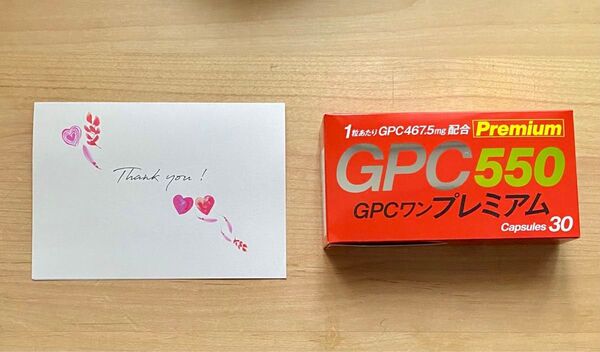 Thank you!
1粒あたり GPC467.5mg 配合 Premium
GPC550
GPCワンプレミアム
Capsules 30